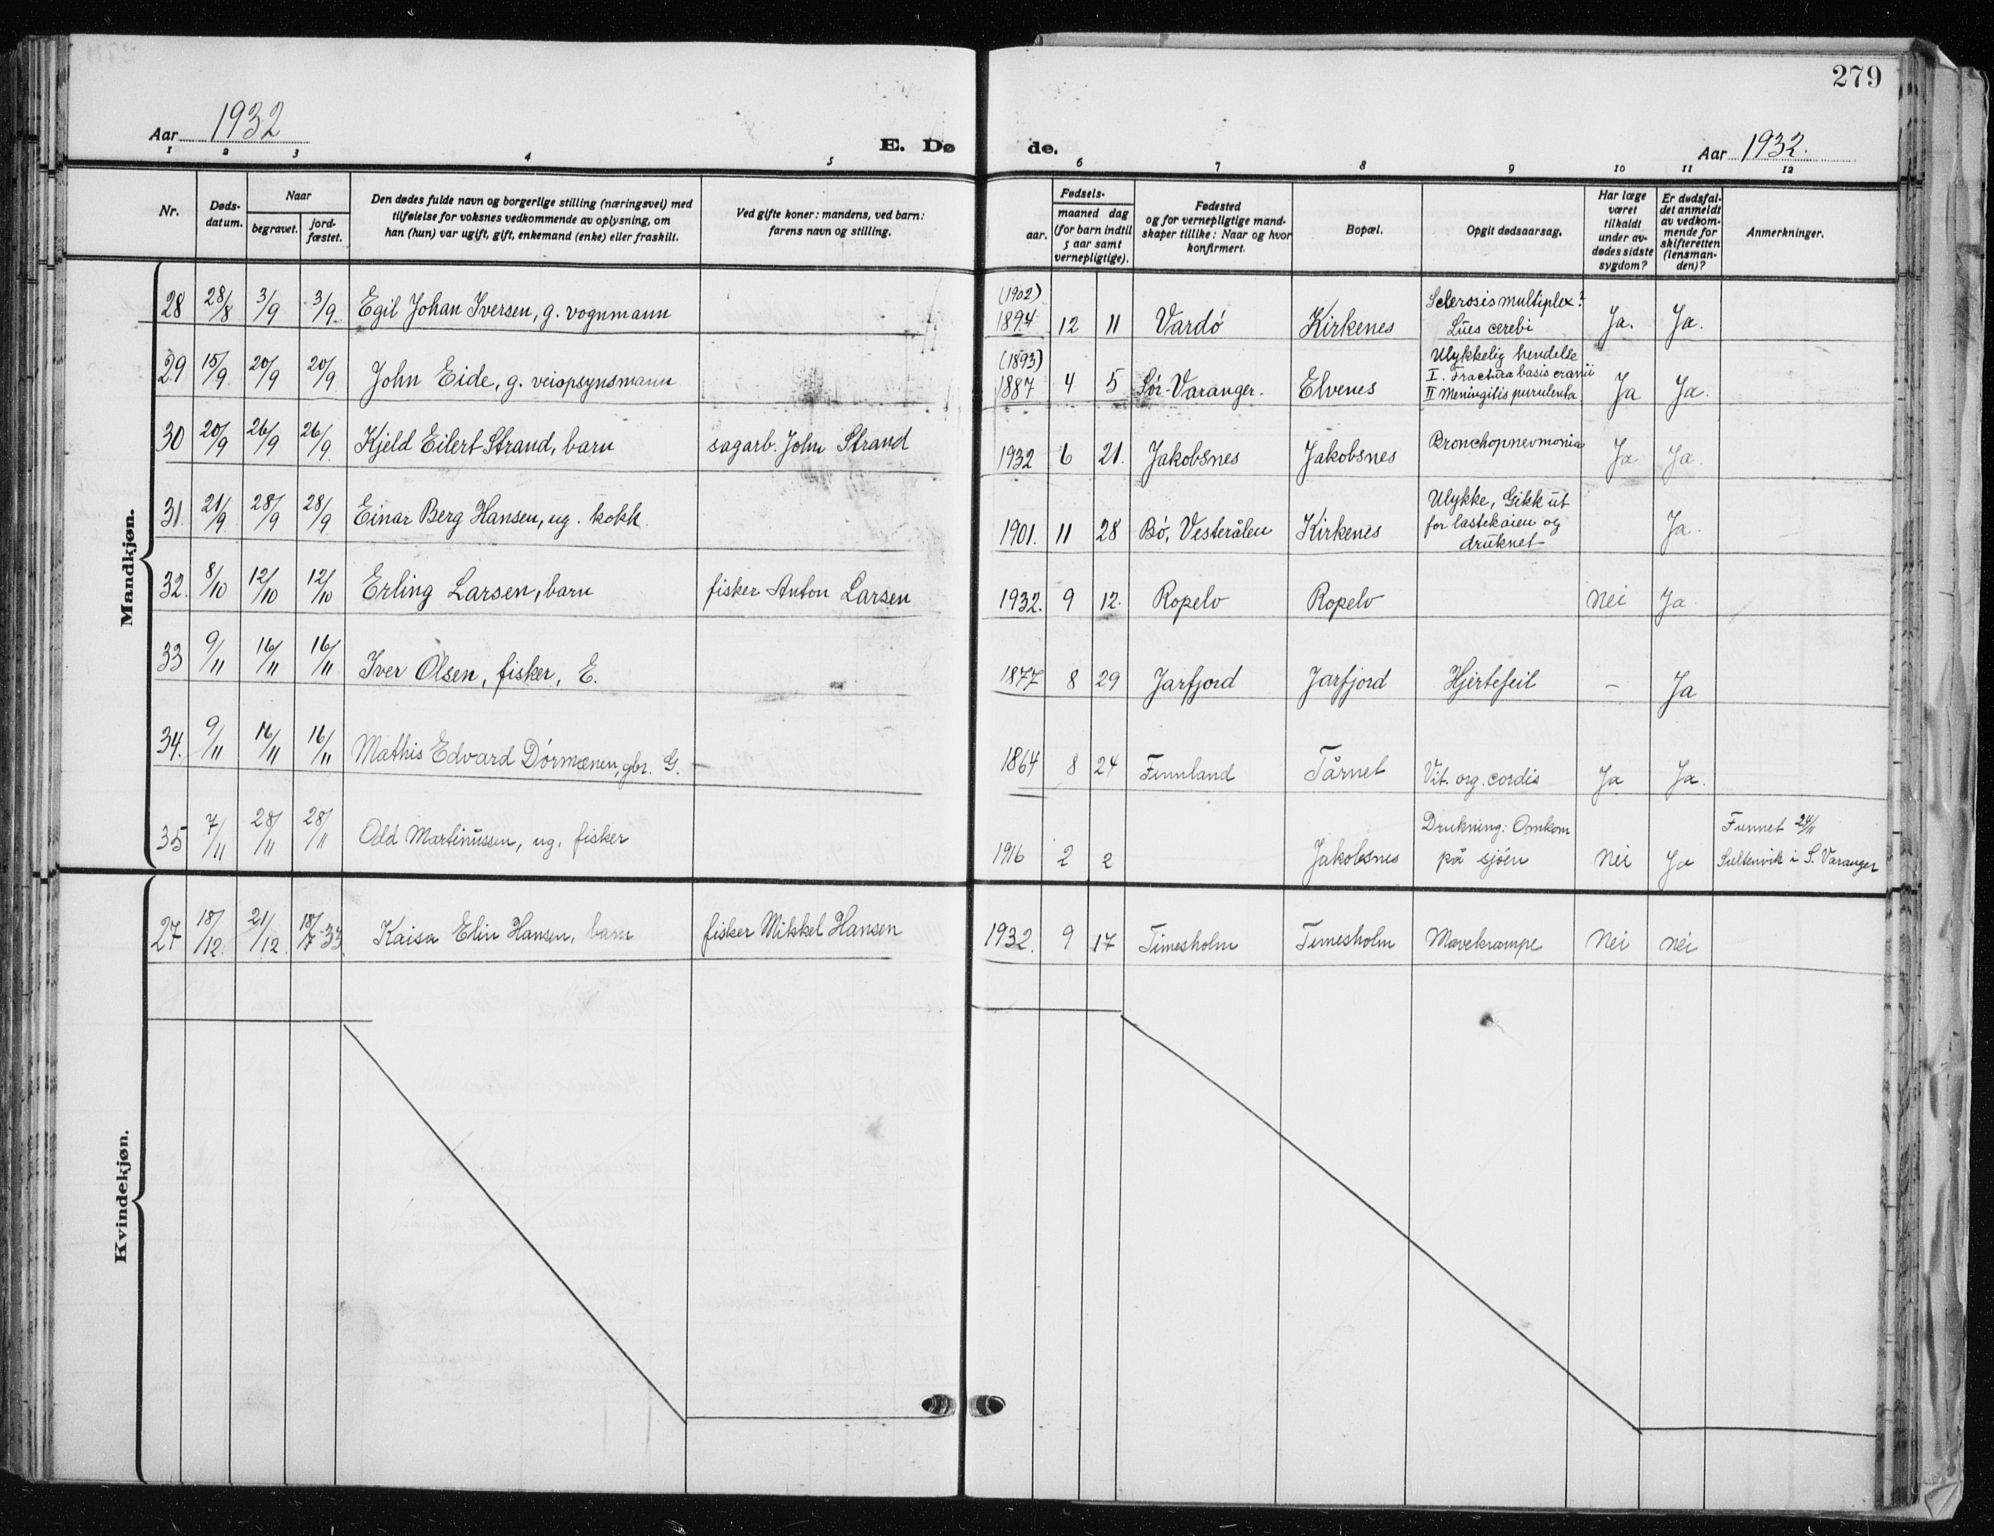 279
Aar 1932
E. Døde.
Aar 1932.
1 2 3 4 5 6 7 8 9 10 11 12
Nr.
Døds-datum.
Naar
begravet.
jord-fæstet.
Den dødes fulde navn og borgerlige stilling (næringsvei) med
tilføielse for voksnes vedkommende av oplysning, om
han (hun) var ugift, gift, enkemand (enke) eller fraskilt.
Ved gifte koner: mandens, ved barn:
farens navn og stilling.
Fødsels-
aar.
maaned dag
(for barn indtil
5 aar samt
vernepligtige).
Fødested
og for vernepligtige mand-
skaper tillike: Naar og hvor
konfirmert.
Bopæl.
Opgit dødsaarsag.
Har læge
været
tilkaldt
under av-
dødes sidste
sygdom?
Er dødsfal-
det anmeldt
av vedkom-
mende for
skifteretten
(lensman-
den)?
Anmerkninger.
Mandkjøn.
28 28/8 3/9 3/9 Egil Johan Iversen, g. vognmann (1902) 1894 12 11 Vardö Kirkenes Sclerosis multiplex? Lües cerebi Ja. Ja.
29 15/9 20/9 20/9 John Eide, g. veiopsynsmann (1893) 1887 4 5 Sör-Varanger. Elvenes Ulykkelig hendelse I. Fractura basis cranii II Meningitis purulenta Ja Ja.
30 20/9 26/9 26/9 Kjeld Eilert Strand, barn sagarb. John Strand 1932 6 21. Jakobsnes Jakobsnes Bronchopnevmonia Ja Ja.
31. 21/9 28/9 28/9 Einar Berg Hansen, ug. kokk. 1901. 11 28 Bö, Vesterålen Kirkenes Ulykke, Gikk ut for lastekaien og druknet Ja.
32. 8/10 12/10 12/10 Erling Larsen, barn fisker Anton Larsen 1932. 9 12. Ropelv Ropelv Nei Ja.
33 9/11 16/11 16/11 Iver Olsen, fisker, E. 1877 8 29 Jarfjord Jarfjord Hjertefeil – Ja
34. 9/11 16/11 16/11 Mathis Edvard Dörmænen, gbr. G. 1864 8 24 Finnland Tårnet Vit. org. cordis Ja Ja.
35 7/11 28/11 28/11 Odd Martinussen, ug. fisker 1916 2 2 Jakobsnes Drukning: Omkom på sjöen Nei Ja Funnet 24/11 Sultenvik i S. Varanger
Kvindekjøn.
27 18/12. 21/12. 18/7-33. Kaisa Elin Hansen, barn fisker Mikkel Hansen 1932. 9 17 Timesholm Timesholm Mavekrampe Nei nei